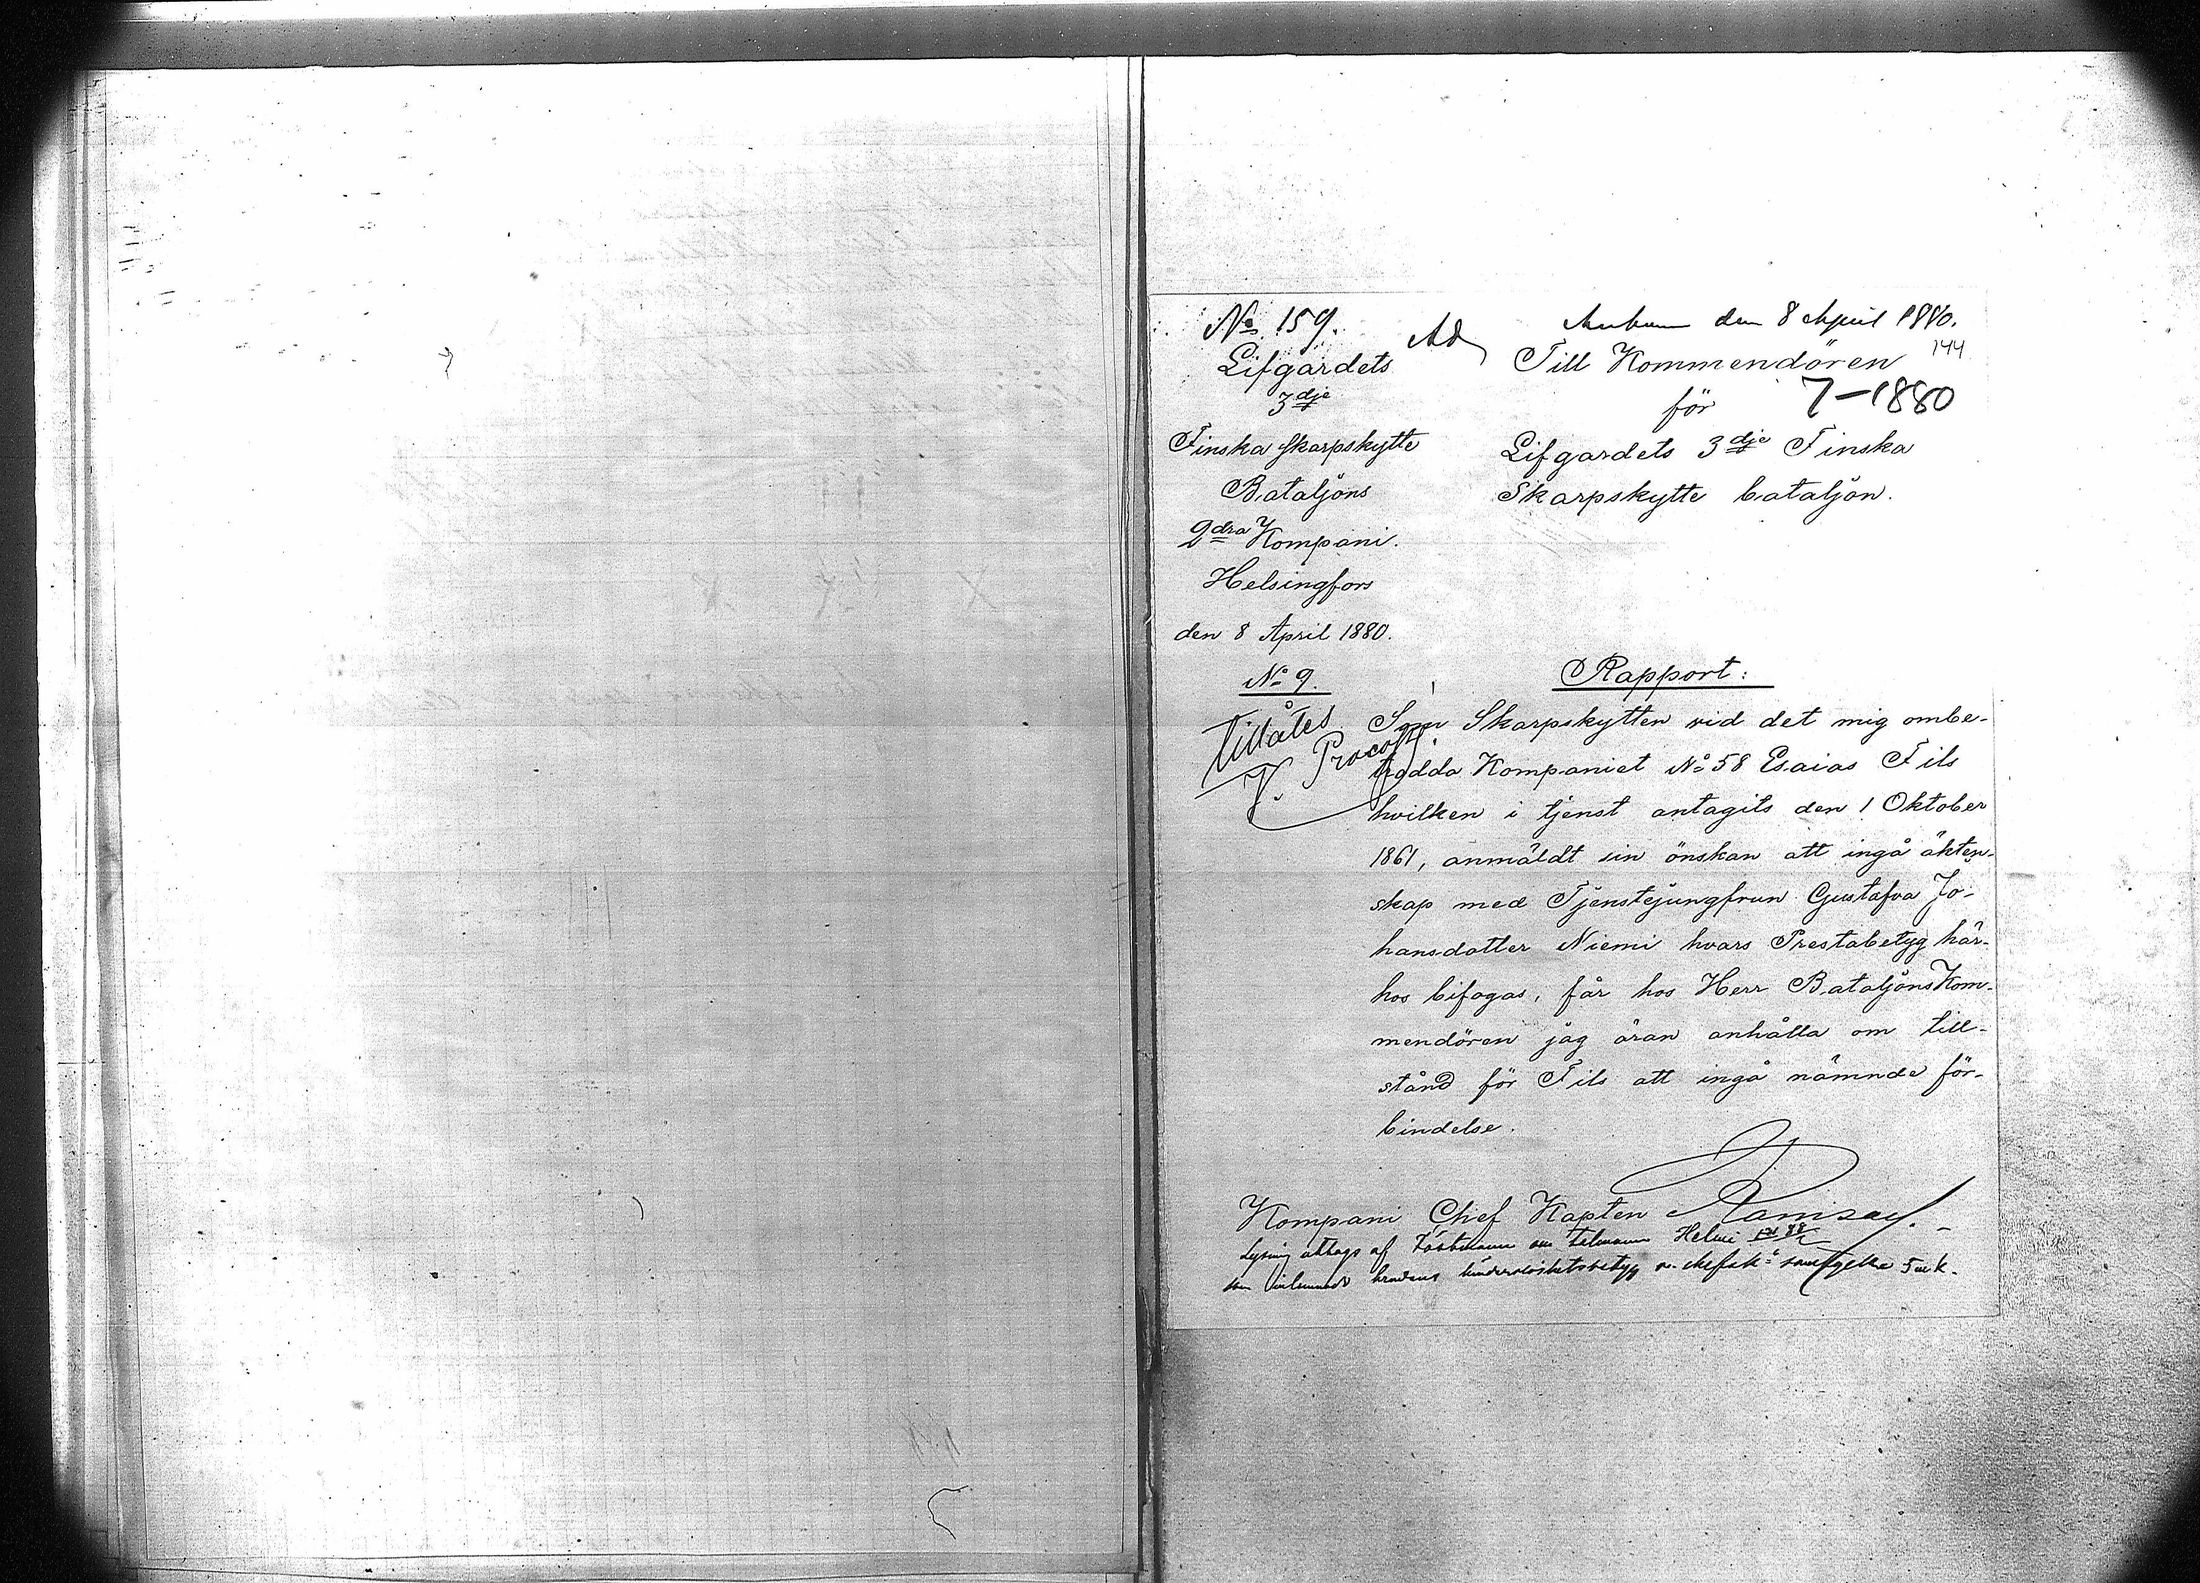 No 159.
Lifgardets
3dje
Finska Skarpskytte
Bataljons
2dra Kompani.
Helsingfors
den 8 April 1880.
No 9.
Tillåtes
V. Procopé.
Ad
Ankom den 8 April 1880.
144
Till Kommendören
för
7-1880
Lifgardets 3dje Finska
Skarpskytte bataljon.
Rapport:
Som Skarpskytten vid det mig ombe-
trodda Kompaniet No 58 Esaias Fils
hvilken i tjenst antagits den 1 Oktober
1861, anmäldt sin önskan att ingå äkten-
skap med Tjenstejungfrun Gustafva Jo-
hansdotter Niemi hvars Prestabetyg här-
hos bifogas, får hos Herr Bataljons Kom-
mendören jag äran anhålla om till-
stånd för Fils att ingå nämnde för-
bindelse.
Kompani Chef Kapten Ramsay.
Lysning uttags af